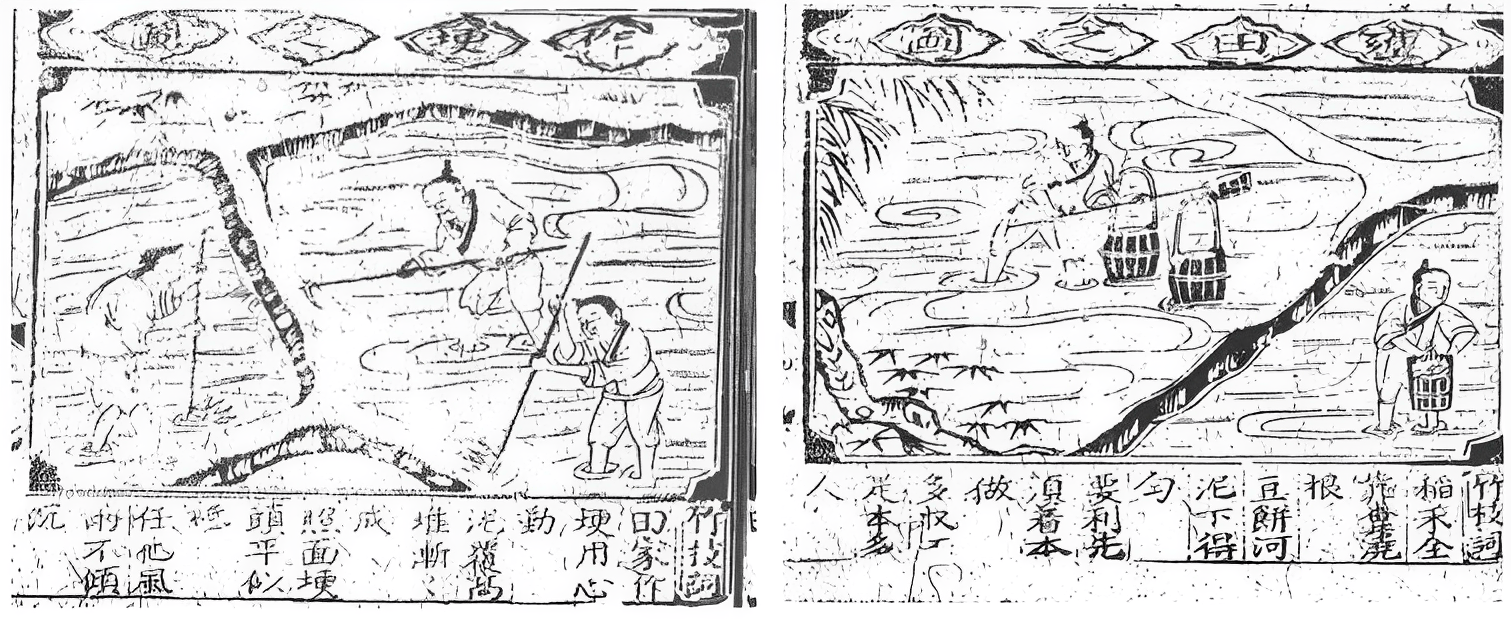 作埂之圖
竹枝詞
田家作
埂用心
勤
泥
堆
成
照面埂
頭平似
任他風
雨不傾
沉
田之圖
竹枝詞
稻禾全
靠糞澆
根
豆餅河
泥下得
勻
要利先
須着本
做
多收
本多
人